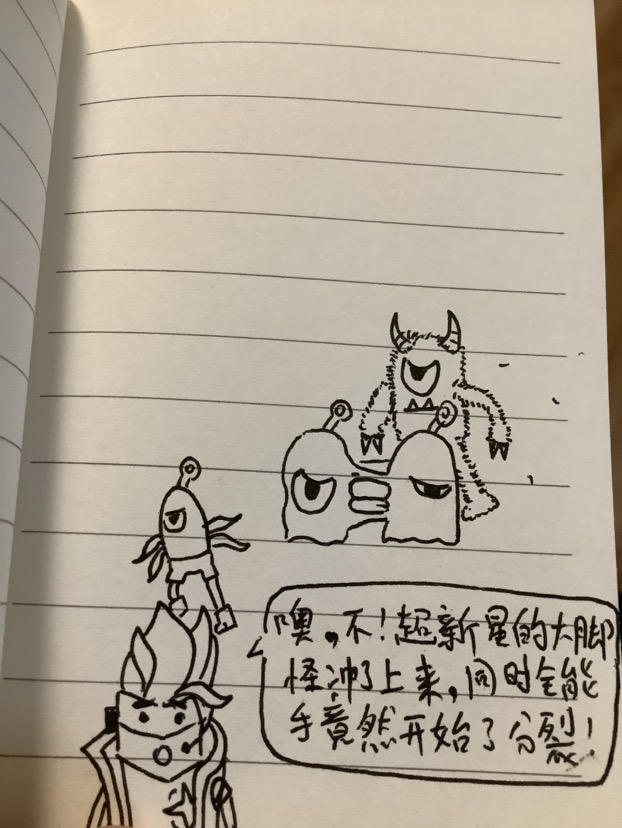 噢，不！超新星的大脚
怪冲了上来，同时全能
手竟然开始了分裂！